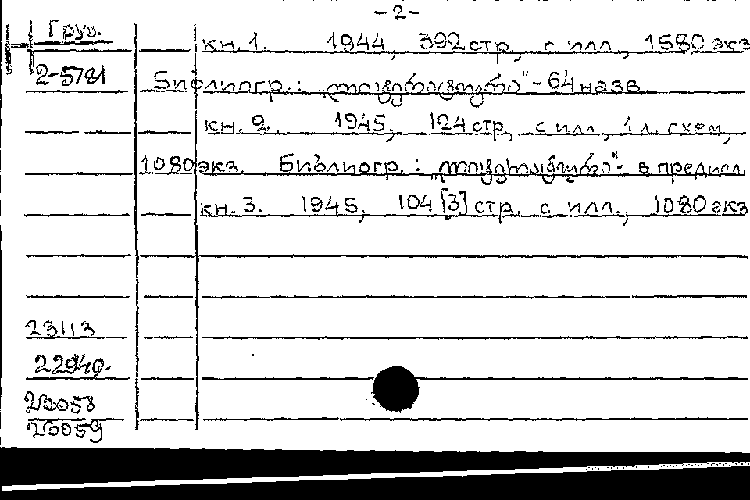 -2-
Груз.
кн. 1. 1944, 392 стр, с илл., 1580 экз
2-5781
Библиогр.: „ლიტერატურა" - 64 назв
кн. 2. 1945, 124 стр, с илл, 1 л. схем,
1080 экз. Библиогр.: „ლიტერატურა"- в предисл
кн. 3. 1945, 104 [3] стр. с илл., 1080 экз
23113
22940.
23058
23059